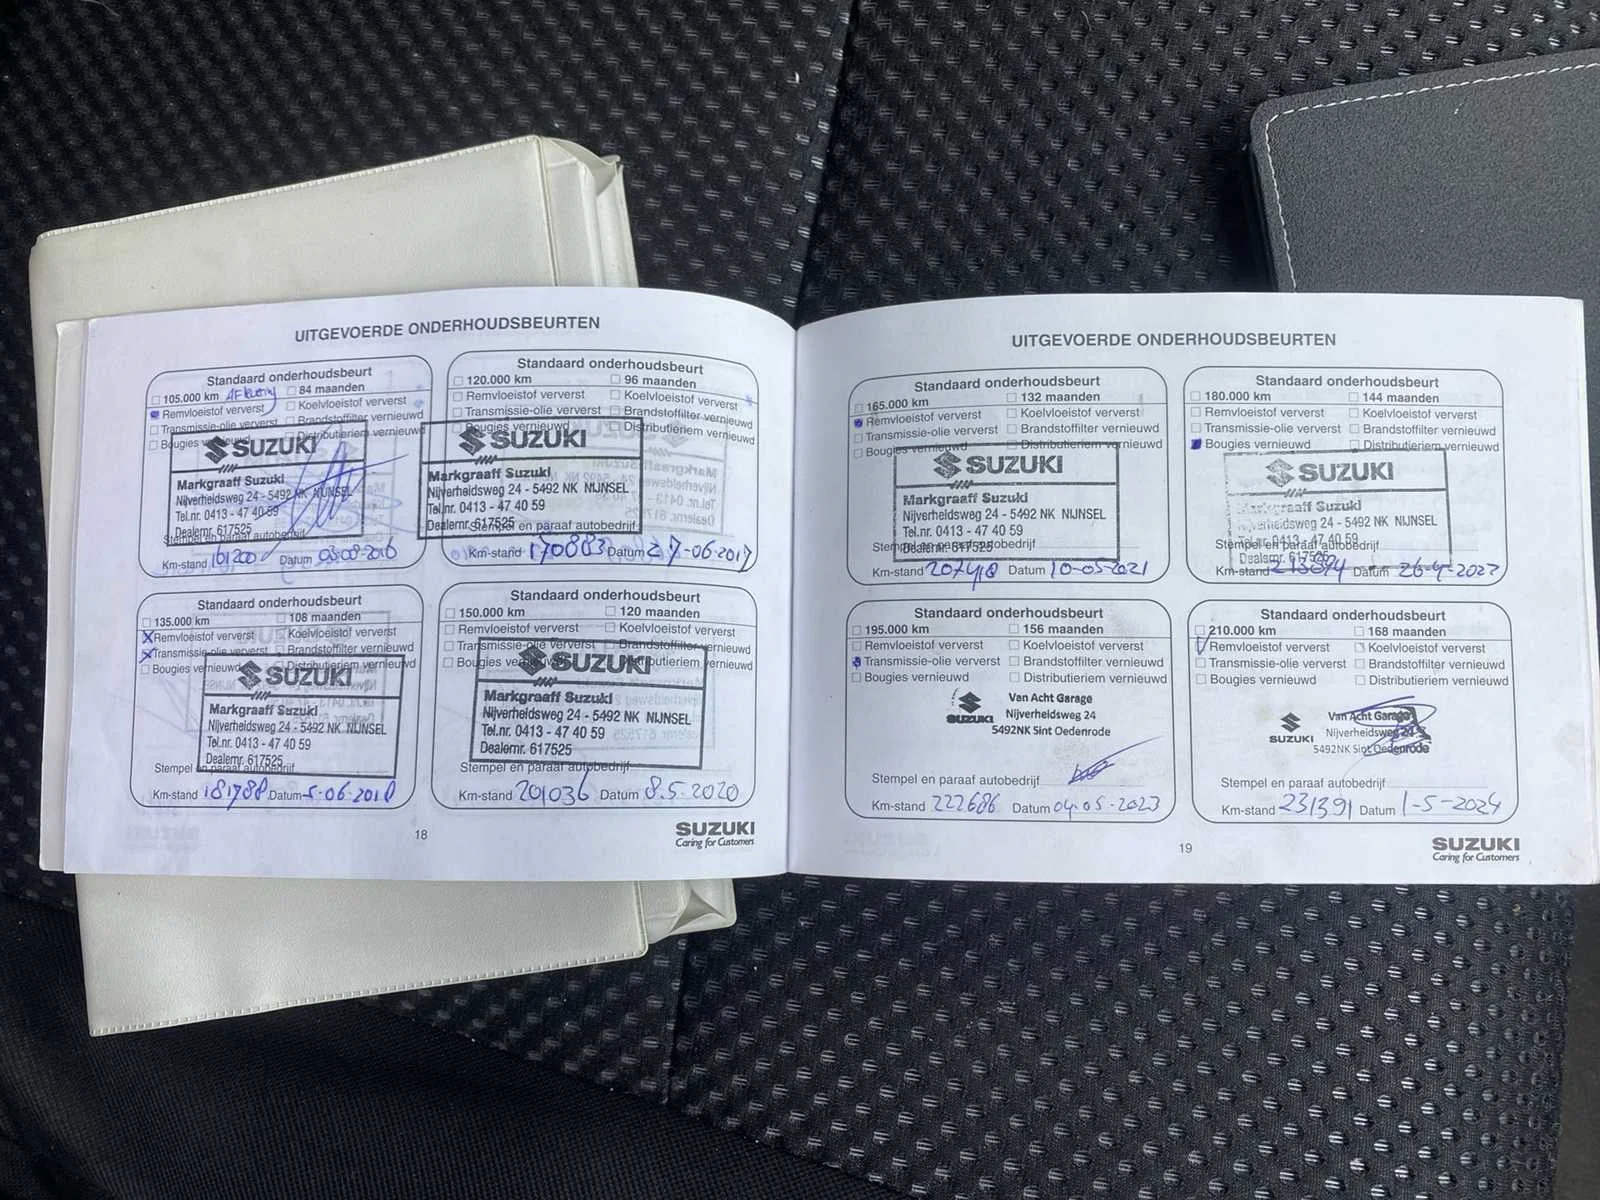 UITGEVOERDE ONDERHOUDSBEURTEN
Standaard onderhoudsbeurt
105.000 km 84 maanden
Remvloeistof ververst Koelvloeistof ververst
Transmissie-olie ververst Brandstoffilter vernieuwd
Bougies vernieuwd Distributieriem vernieuwd
SUZUKI
Markgraaff Suzuki
Nijverheidsweg 24 - 5492 NK NIJNSEL
Tel.nr. 0413 - 47 40 59
Dealernr. 617525
Stempel en paraaf autobedrijf
Km-stand 161200 Datum 03-08-2016
Standaard onderhoudsbeurt
120.000 km 96 maanden
Remvloeistof ververst Koelvloeistof ververst
Transmissie-olie ververst Brandstoffilter vernieuwd
Bougies vernieuwd Distributieriem vernieuwd
SUZUKI
Markgraaff Suzuki
Nijverheidsweg 24 - 5492 NK NIJNSEL
Tel.nr. 0413 - 47 40 59
Dealernr. 617525
Stempel en paraaf autobedrijf
Km-stand 170883 Datum 27-06-2017
Standaard onderhoudsbeurt
135.000 km 108 maanden
Remvloeistof ververst Koelvloeistof ververst
Transmissie-olie ververst Brandstoffilter vernieuwd
Bougies vernieuwd Distributieriem vernieuwd
SUZUKI
Markgraaff Suzuki
Nijverheidsweg 24 - 5492 NK NIJNSEL
Tel.nr. 0413 - 47 40 59
Dealernr. 617525
Stempel en paraaf autobedrijf
Km-stand 181788 Datum 5-06-2018
Standaard onderhoudsbeurt
150.000 km 120 maanden
Remvloeistof ververst Koelvloeistof ververst
Transmissie-olie ververst Brandstoffilter vernieuwd
Bougies vernieuwd Distributieriem vernieuwd
SUZUKI
Markgraaff Suzuki
Nijverheidsweg 24 - 5492 NK NIJNSEL
Tel.nr. 0413 - 47 40 59
Dealernr. 617525
Stempel en paraaf autobedrijf
Km-stand 201036 Datum 8.5.2020
18
SUZUKI
Caring for Customers
UITGEVOERDE ONDERHOUDSBEURTEN
Standaard onderhoudsbeurt
165.000 km 132 maanden
Remvloeistof ververst Koelvloeistof ververst
Transmissie-olie ververst Brandstoffilter vernieuwd
Bougies vernieuwd Distributieriem vernieuwd
SUZUKI
Markgraaff Suzuki
Nijverheidsweg 24 - 5492 NK NIJNSEL
Tel.nr. 0413 - 47 40 59
Dealernr. 617525
Stempel en paraaf autobedrijf
Km-stand 207418 Datum 10-05-2021
Standaard onderhoudsbeurt
180.000 km 144 maanden
Remvloeistof ververst Koelvloeistof ververst
Transmissie-olie ververst Brandstoffilter vernieuwd
Bougies vernieuwd Distributieriem vernieuwd
SUZUKI
Markgraaff Suzuki
Nijverheidsweg 24 - 5492 NK NIJNSEL
Tel.nr. 0413 - 47 40 59
Dealernr. 617525
Stempel en paraaf autobedrijf
Km-stand 213894 Datum 26-4-2022
Standaard onderhoudsbeurt
195.000 km 156 maanden
Remvloeistof ververst Koelvloeistof ververst
Transmissie-olie ververst Brandstoffilter vernieuwd
Bougies vernieuwd Distributieriem vernieuwd
SUZUKI
Van Acht Garage
Nijverheidsweg 24
5492NK Sint Oedenrode
Stempel en paraaf autobedrijf
Km-stand 222686 Datum 04-05-2023
Standaard onderhoudsbeurt
210.000 km 168 maanden
Remvloeistof ververst Koelvloeistof ververst
Transmissie-olie ververst Brandstoffilter vernieuwd
Bougies vernieuwd Distributieriem vernieuwd
SUZUKI
Van Acht Garage
Nijverheidsweg 24
5492NK Sint Oedenrode
Stempel en paraaf autobedrijf
Km-stand 231391 Datum 1-5-2024
19
SUZUKI
Caring for Customers